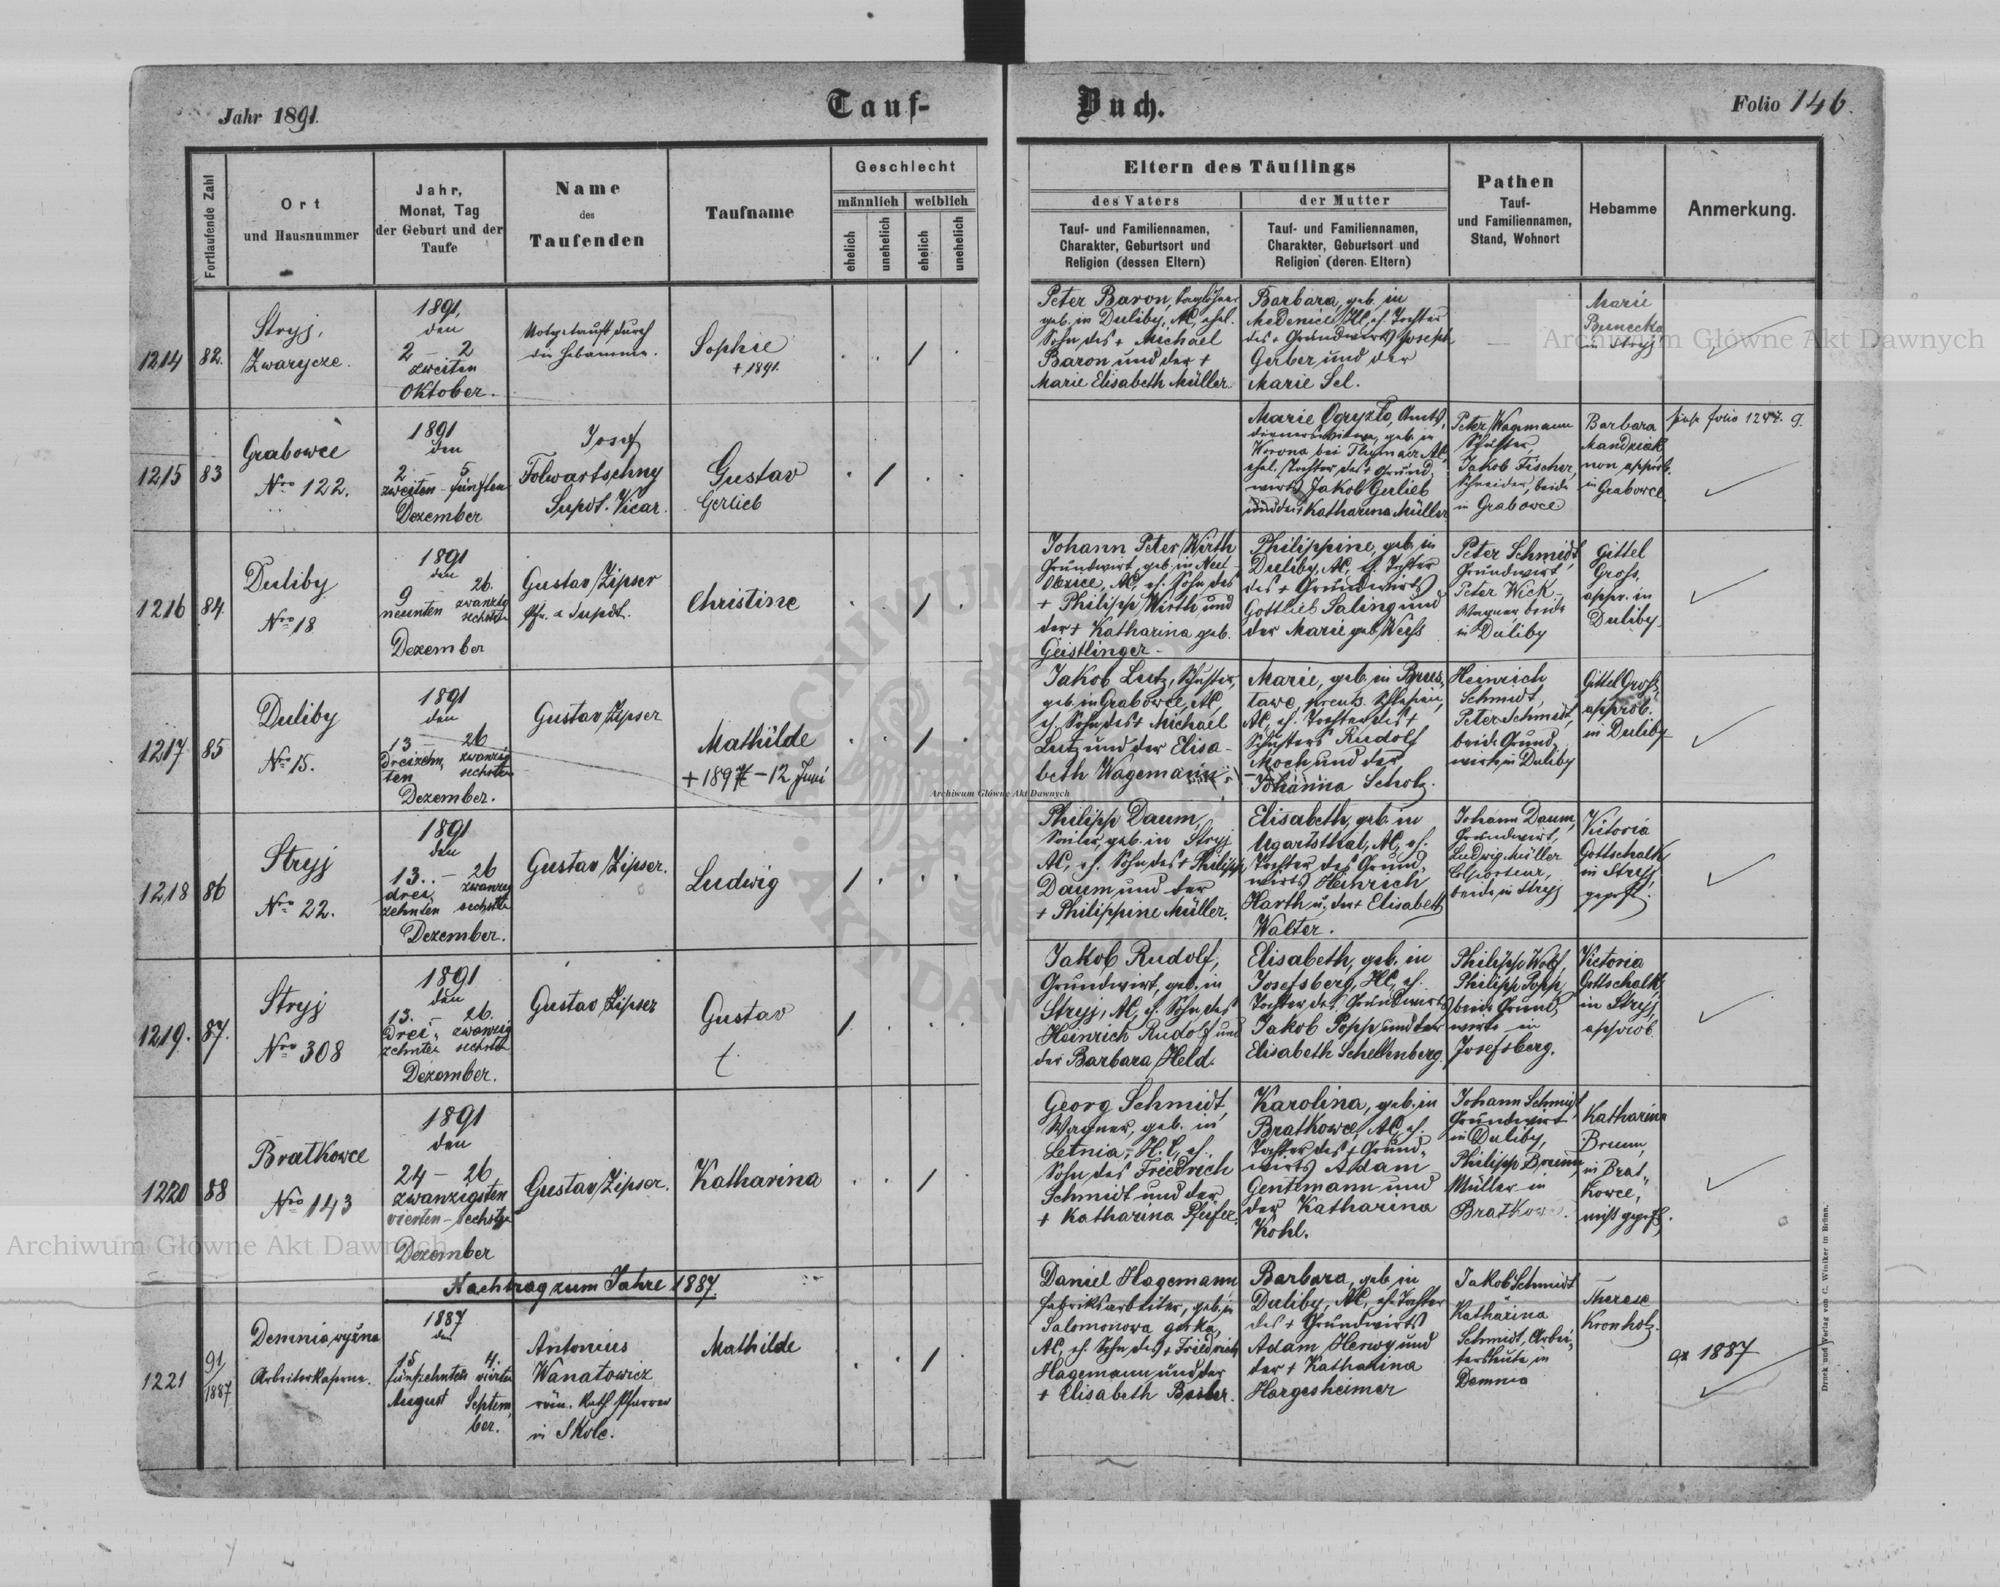 Jahr 1891.
Tauf-
Buch.
Folio 146.
Fortlaufende Zahl
Ort
und Hausnummer
Jahr,
Monat, Tag
der Geburt und der
Taufe
Name
des
Taufenden
Taufname
Geschlecht
männlich
weiblich
ehelich
unehelich
ehelich
unehelich
Eltern des Täuflings
des Vaters
der Mutter
Tauf- und Familiennamen,
Charakter, Geburtsort und
Religion (dessen Eltern)
Tauf- und Familiennamen,
Charakter, Geburtsort und
Religion (deren Eltern)
Pathen
Tauf-
und Familiennamen,
Stand, Wohnort
Hebamme
Anmerkung.
1214
82.
Stryj,
Zwarycze.
1891,
den
2 - 2
zweiten
Oktober.
Notgetauft durch
die Hebamme.
Sophie
+ 1891.
Peter Baron, Taglöhner
geb. in Duliby, AC, ehel.
Sohn des + Michael
Baron und der +
Marie Elisabeth Müller.
Barbara, geb. in
Medenice, HC, eh. Tochter
des + Grundwirts Joseph
Gerber und der
Marie Sel.
Marie
Bunecka
in Stryj
1215
83
Grabowce
Nro 122.
1891
den
2 - 5
zweiten - fünften
Dezember
Josef
Folwartschny
Supdt. Vicar.
Gustav
Gerlieb
Marie Ogryzło, Amts-
dienerswitwe, geb. in
Korona bei Tłumacz AC
ehel. Tochter des + Grund-
wirts Jakob Gerlieb
und der Katharina Müller
Peter Wagemann
Schuster,
Jakob Fischer,
Schneider, beide
in Grabowce
Barbara
Mandziak
non approb.
in Grabowce
siehe folio 1247. g.
1216
84.
Duliby
Nro 18
1891
den
9 - 26.
neunten zwanzig
sechsten
Dezember
Gustav Zipser
Pfr. u Supdt.
Christine
Johann Peter Wirth
Grundwirt, geb. in Neu-
Oleice, AC, eh. Sohn des
+ Philipp Wirth und
der + Katharina geb.
Geistlinger.
Philippine, geb. in
Duliby, AC, eh. Tochter
des + Grundwirts
Gottlieb Saling und
der Marie geb. Weiß
Peter Schmidt,
Grundwirt,
Peter Wick
Wagner, beide
in Duliby
Gittel
Gross,
appr. in
Duliby.
1217.
85
Duliby
Nr 15.
1891
den
13 - 26
dreizehn- zwanzig
ten sechsten
Dezember.
Gustav Zipser
Mathilde
+ 1897 - 12 Juni
Jakob Lutz, Schuster,
geb. in Grabowce, AC,
eh. Sohn des + Michael
Lutz und der Elisa-
beth Wagemann
Marie, geb. in Brus-
tawe, preuss. Schlesien,
AC, eh. Tochter des +
Schusters Rudolf
Moch und der
Johanna Scholz.
Heinrich
Schmidt,
Peter Schmidt,
beide Grund-
wirte in Duliby
Gittel Gross,
approb.
in Duliby
1218
86
Stryj
Nro 22.
1891
den
13. - 26
drei- zwanzig
zehnten sechsten
Dezember.
Gustav Zipser.
Ludwig
Philipp Daum,
Seiler, geb. in Stryj
AC, eh. Sohn des + Philipp
Daum und der
+ Philippine Müller.
Elisabeth, geb. in
Ugartsthal, AC, eh.
Tochter des Grund-
wirts Heinrich
Harth u. der + Elisabeth
Walter.
Johann Daum,
Grundwirt,
Ludwig Müller
Colporteur,
beide in Stryj
Victoria
Gottschalk
in Stryj
geprft.
1219.
87.
Stryj
Nro 308
1891
den
13. - 26.
Drei- zwanzig
zehnten sechsten
Dezember.
Gustav Zipser
Gustav
Jakob Rudolf,
Grundwirt, geb. in
Stryj, AC, eh. Sohn des
Heinrich Rudolf und
der Barbara Held.
Elisabeth, geb. in
Josefsberg, HC, eh.
Tochter des Grundwirts
Jakob Popp und der
Elisabeth Schellenberg.
Philipp Wolf,
Philipp Popp,
beide Grund-
wirte in
Josefsberg.
Victoria
Gottschalk,
in Stryj,
approb.
1220
88
Bratkowce
Nro 143
1891
den
24 - 26
zwanzigsten
vierten - sechsten
Dezember
Gustav Zipser.
Katharina
Georg Schmidt,
Wagner, geb. in
Letnia, H.C, eh.
Sohn des Friedrich
Schmidt und der
+ Katharina Pfeifer.
Karolina, geb. in
Bratkowce, AC, eh.
Tochter des + Grund-
wirts Adam
Gentemann und
der Katharina
Kohl.
Johann Schmidt,
Grundwirt
in Duliby,
Philipp Brunn,
Müller in
Bratkow
Katharina
Brunn,
in Brat-
kowce,
nicht geprft.
Nachtrag zum Jahre 1887.
1221
91/1887
Demnia wyżna
Arbeiterkaserne.
1887
den
15 - 4.
fünfzehnten vierten
August Septem-
ber.
Antonius
Wanatowicz
röm. kath. Pfarrer
in Skole.
Mathilde
Daniel Hagemann
Fabriksarbeiter, geb. in
Salomonowa górka,
AC, eh. Sohn des + Friedrich
Hagemann und der
+ Elisabeth Basler.
Barbara, geb. in
Duliby, AC, eh. Tochter
des + Grundwirts
Adam Herwy und
der + Katharina
Hargesheimer
Jakob Schmidt
Katharina
Schmidt, Arbei-
tersleute in
Demnia
Therese
Kronholz.
ex 1887
Druck und Verlag von C. Winiker in Brünn.
Archiwum Główne Akt Dawnych
Archiwum Główne Akt Dawnych
Archiwum Główne Akt Dawnych